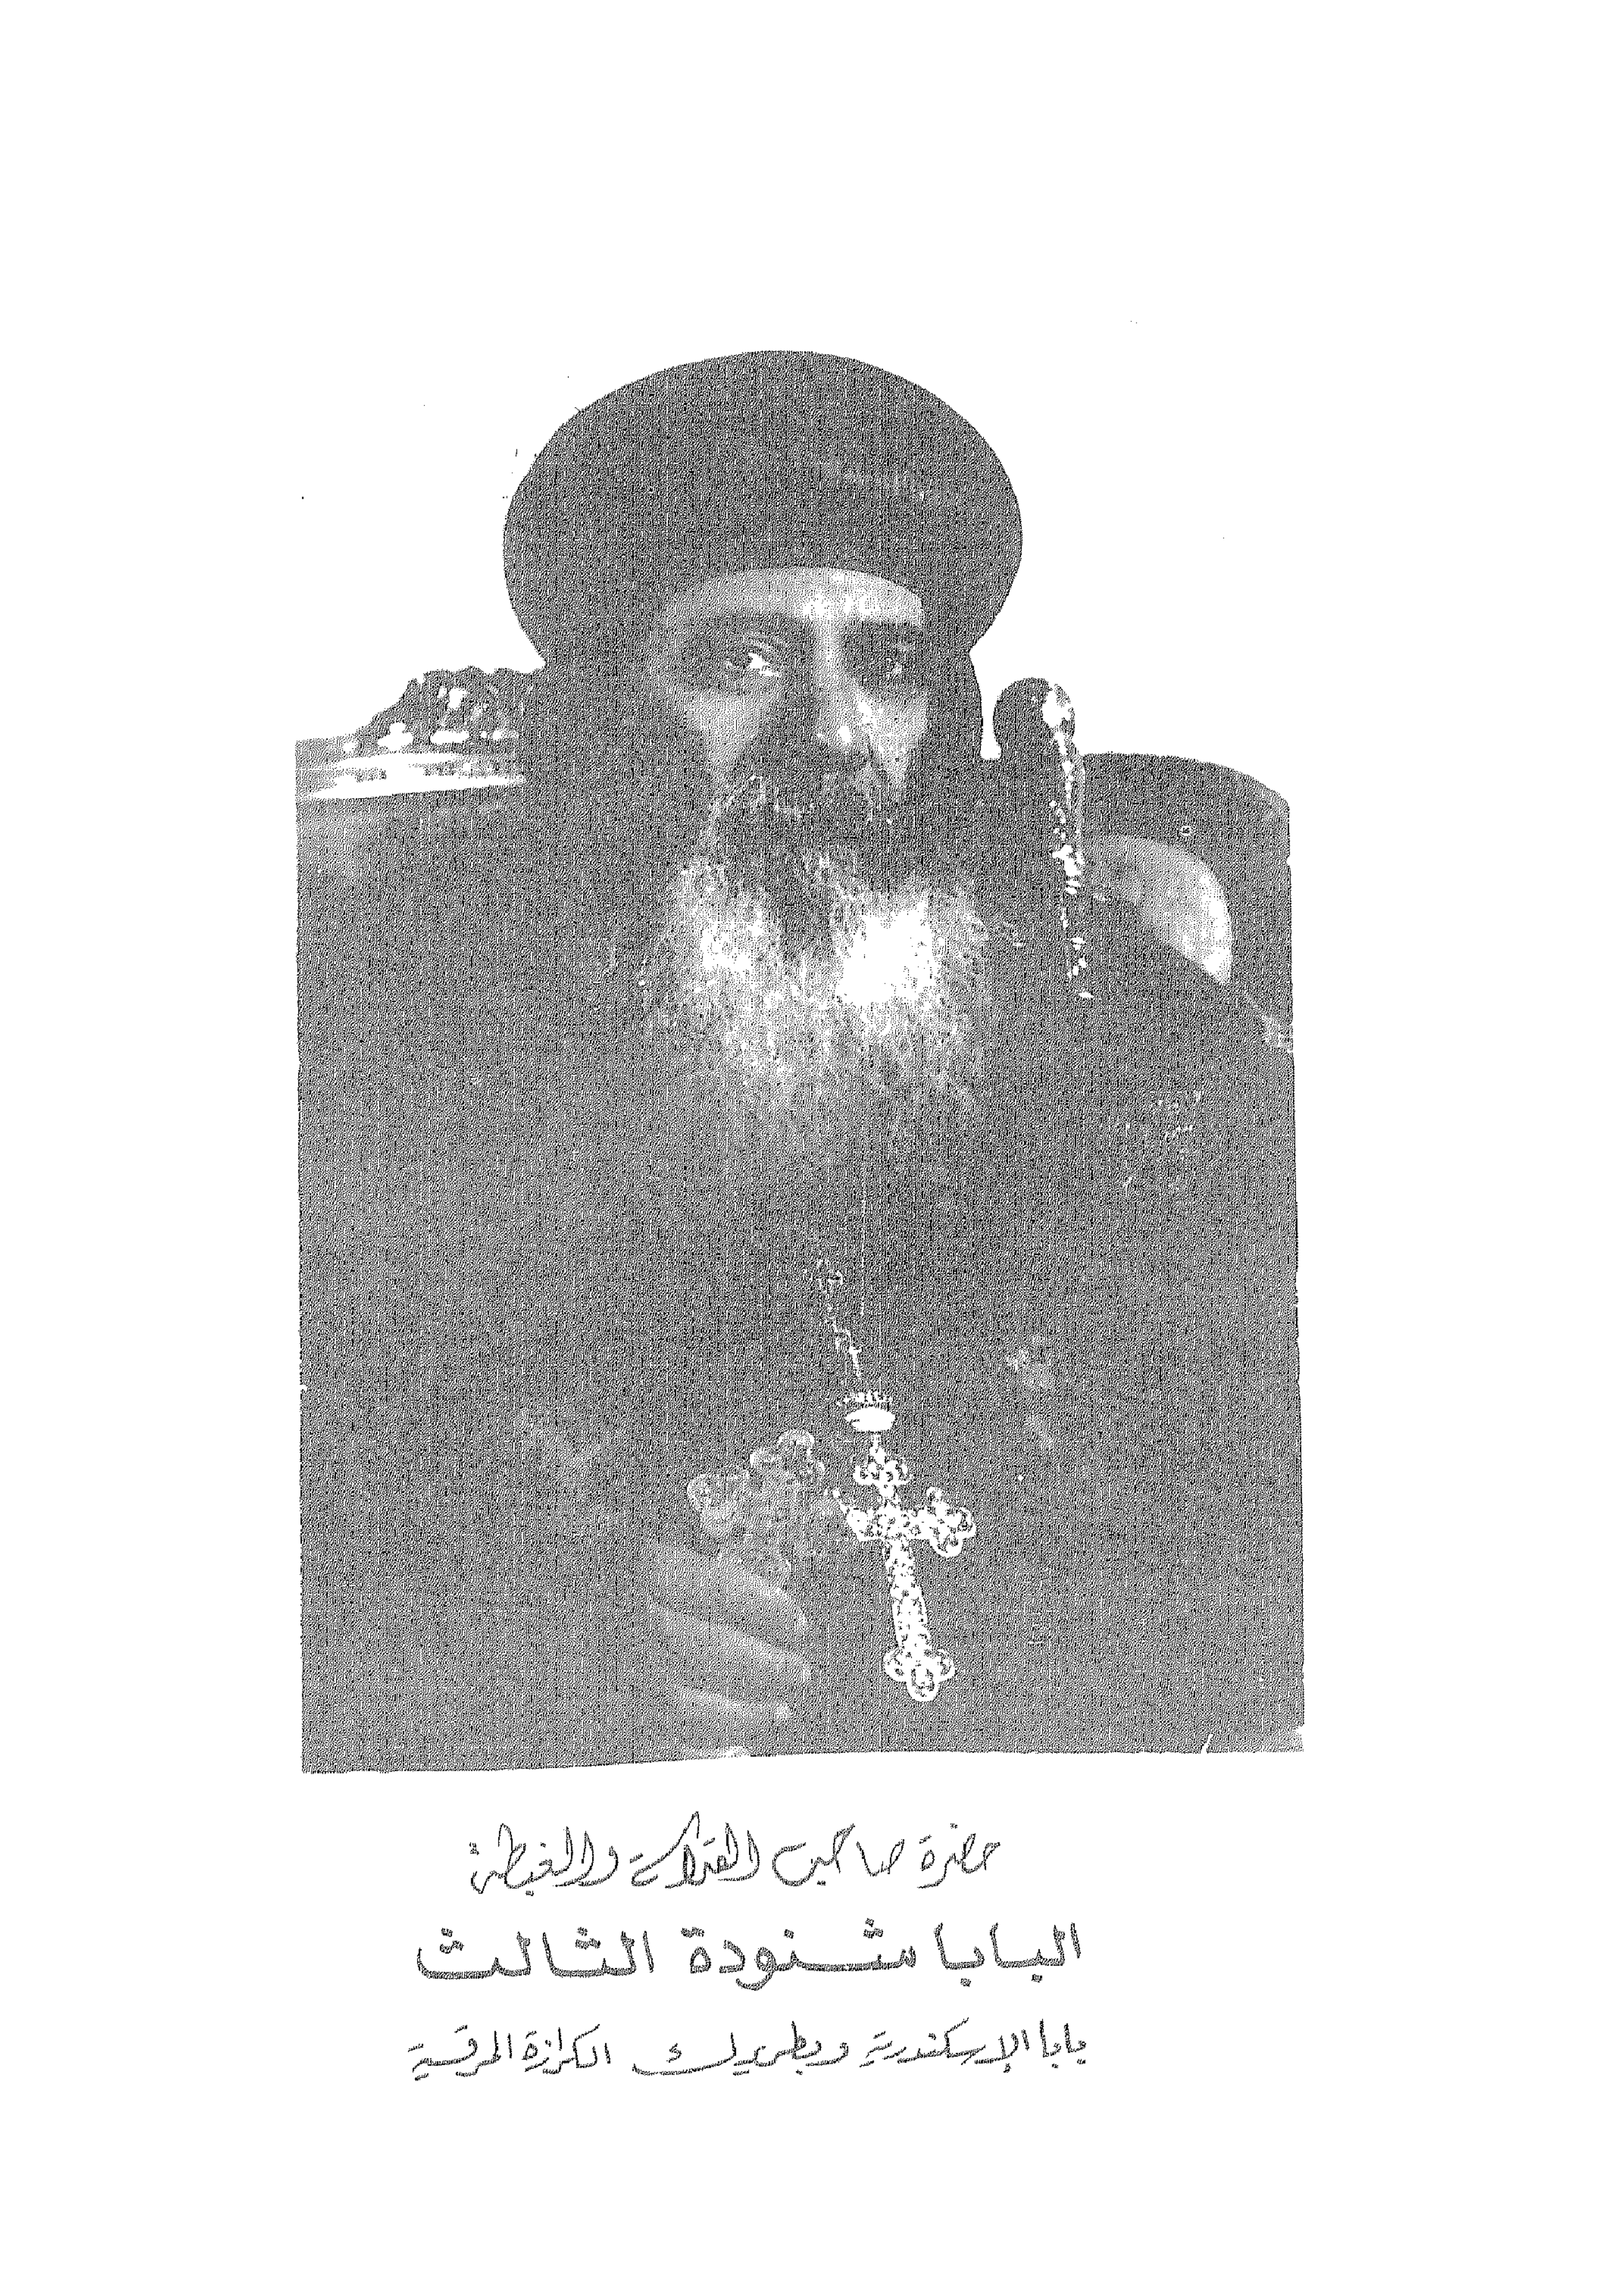 حضرة صاحب القداسة والغبطة
البابا شنودة الثالث
بابا الإسكندرية وبطريرك الكرازة المرقسية